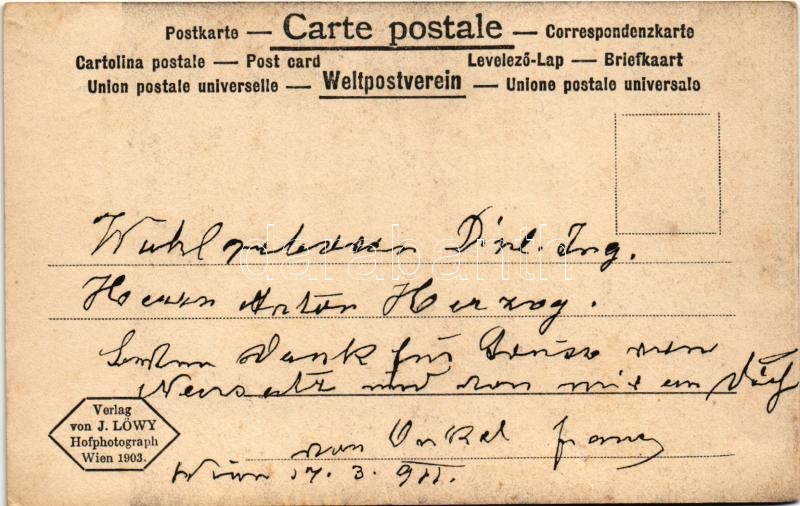 Postkarte — Carte postale — Correspondenzkarte
Cartolina postale — Post card Levelező-Lap — Briefkaart
Union postale universelle — Weltpostverein — Unione postale universale
Dipl. Ing.
Herrn Anton Herzog.
Dank für Grüsse von
Neusatz und von mir an Dich
von Onkel Franz
Wien 17. 3. 911.
Verlag
von J. LÖWY
Hofphotograph
Wien 1903.
darabanth